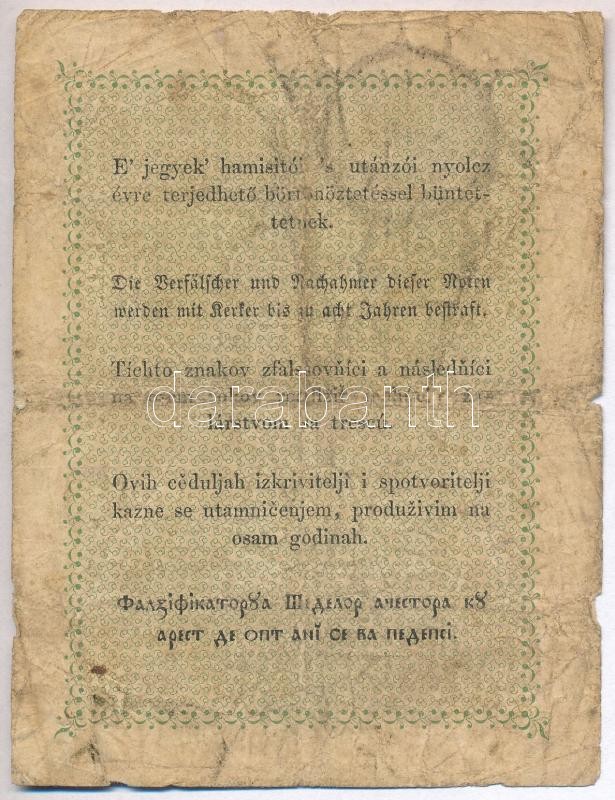 E' jegyek' hamisitói 's utánzói nyolcz
évre terjedhető börtönöztetéssel büntet-
tetnek.
Die Verfälscher und Nachahmer dieser Noten
werden mit Kerker bis zu acht Jahren bestraft.
Tíchto znakov zfalšovňíci a následňíci
na
darabanth
lárstvom sa trescú.
Ovih cěduljah izkrivitelji i spotvoritelji
kazne se utamničenjem, produživim na
osam godinah.
Фалзіфікаторꙋа Шіделор ачестора кꙋ
арест де опт ані се ва педепсі.